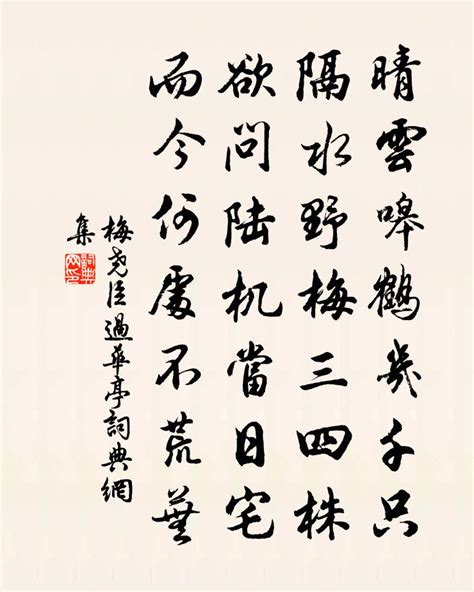 晴雲嗥鶴幾千只
隔水野梅三四株
欲問陆机當日宅
而今何處不荒蕪
梅尧臣過華亭詞典網
集
詞典
网印